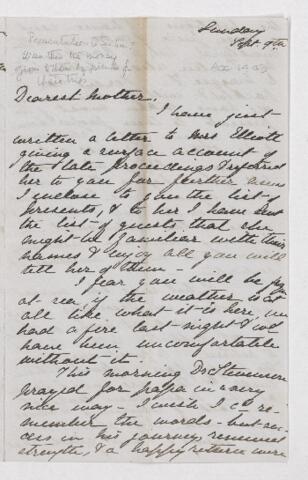 Sunday
Sept. 9th
Presentation to
Was this the money
given to them by friends for
Dearest Mother,
I have just
written a letter to Mrs Elliott
giving a surface account of
the late proceedings & referred
her to you for further news
I inclose to you the list of
presents, & to her I have sent
the list of guests that she
might be familiar with their
names & enjoy all you will
tell her of them -
I fear you will be
at sea, if the weather is at
all like what it is here, we
had a fire last night & wd
have been uncomfortable
without it.
This morning Dr Stevenson
prayed for papa in a very
nice way - I wish I cd re-
member the words - but suc-
cess in his journey, renewed
strength, & a happy return were